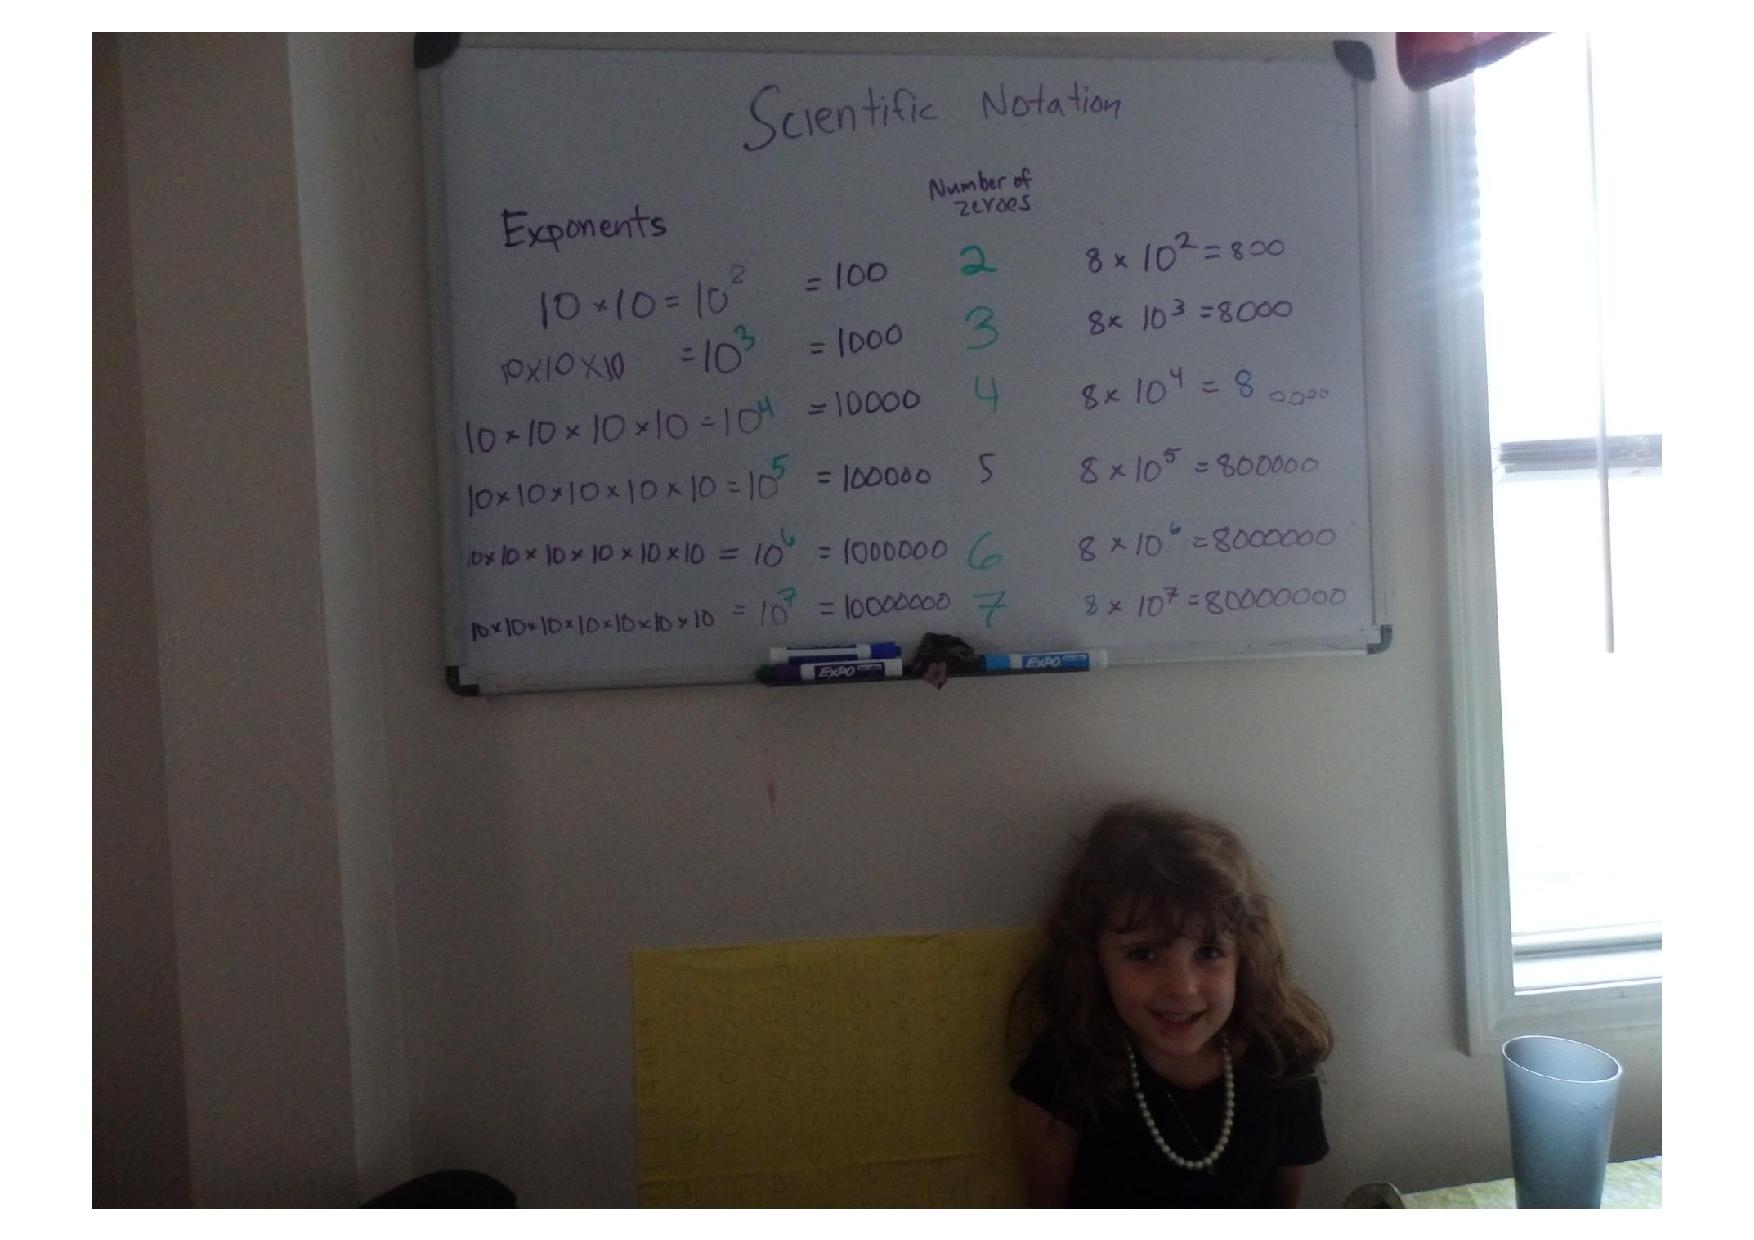 Scientific Notation
Number of
zeroes
Exponents
10 × 10 = 10² = 100 2 8 × 10² = 800
10×10×10 = 10³ = 1000 3 8× 10³ = 8000
10 × 10 × 10 × 10 = 10⁴ = 10000 4 8× 10⁴ = 8 0000
10 × 10 × 10 × 10 × 10 = 10⁵ = 100000 5 8 × 10⁵ = 800000
10× 10 × 10 × 10 × 10 × 10 = 10⁶ = 1000000 6 8 × 10⁶ = 8000000
10 × 10 × 10 × 10 × 10 × 10 × 10 = 10⁷ = 10000000 7 8 × 10⁷ = 80000000
EXPO EXPO
Austin's